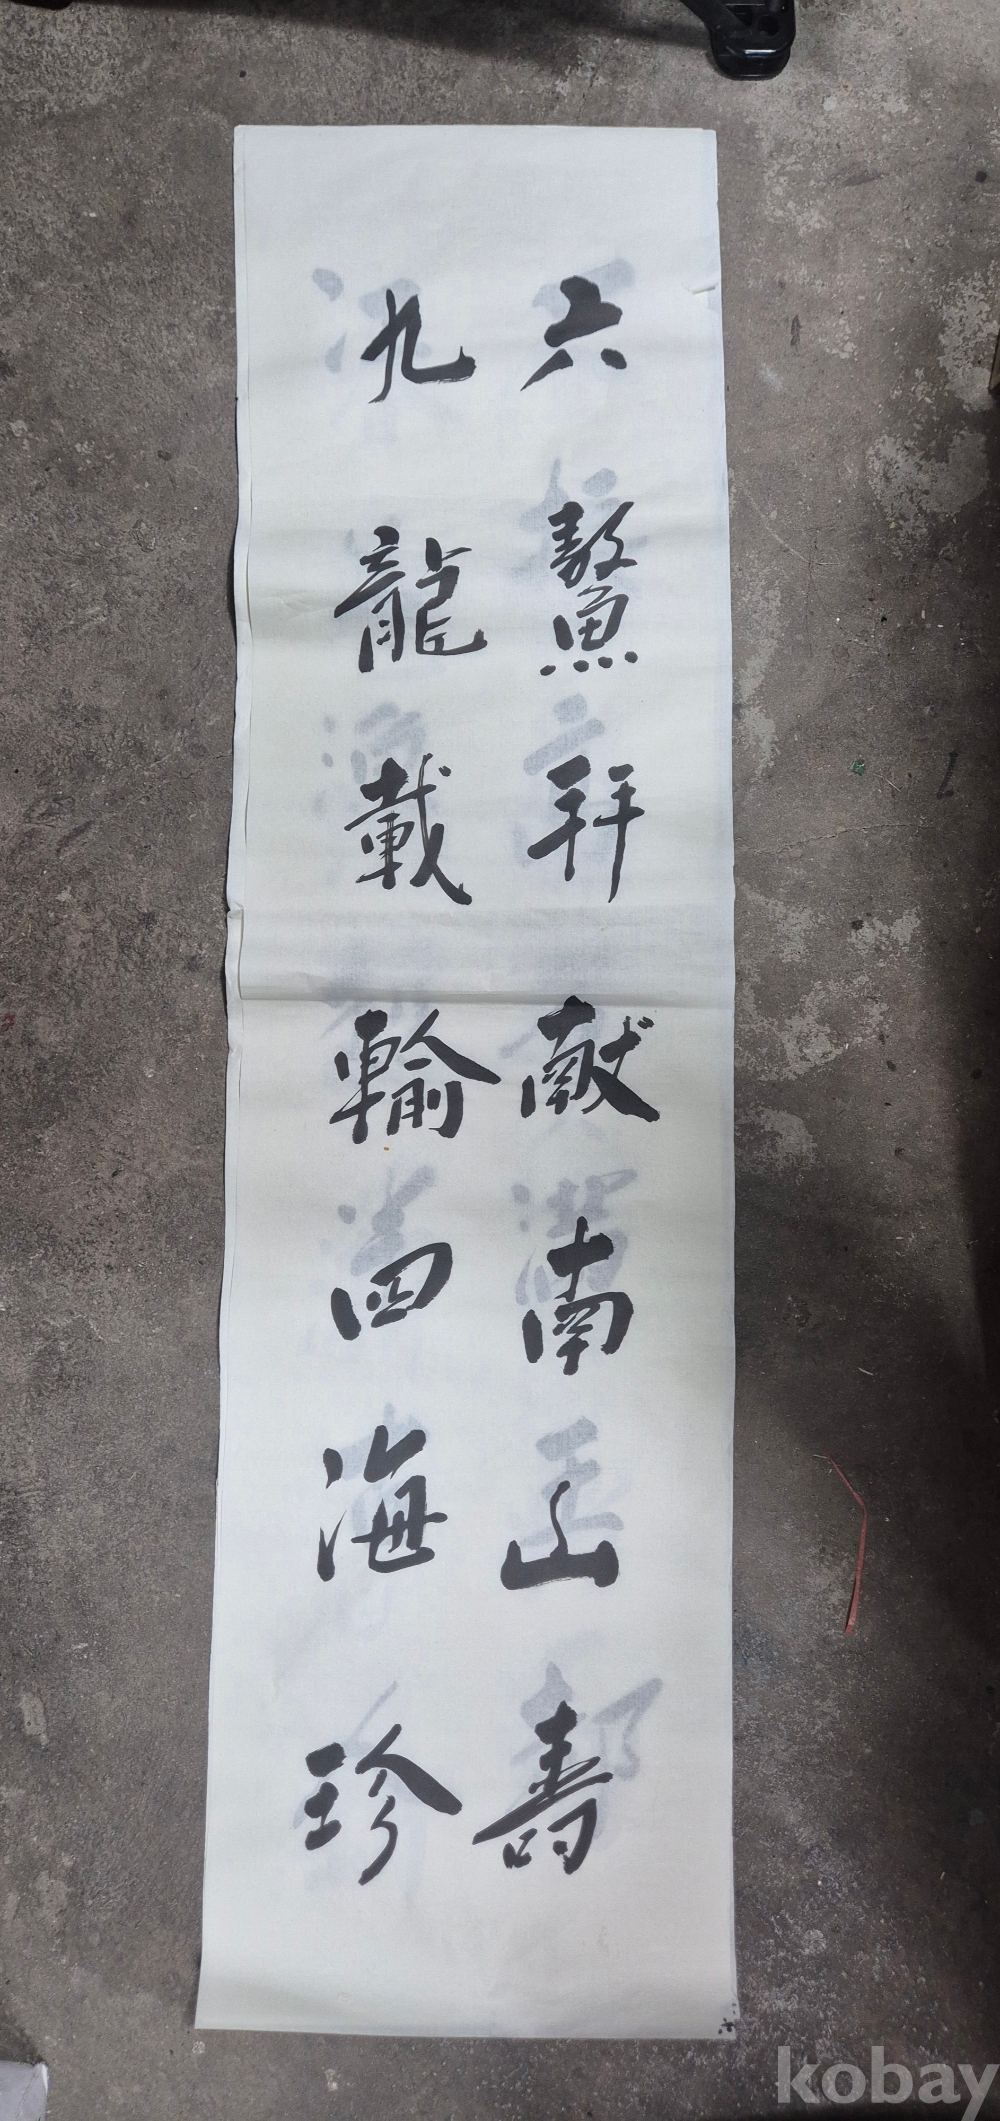 六鰲拜獻南山壽
九龍載輸四海珍
kobay